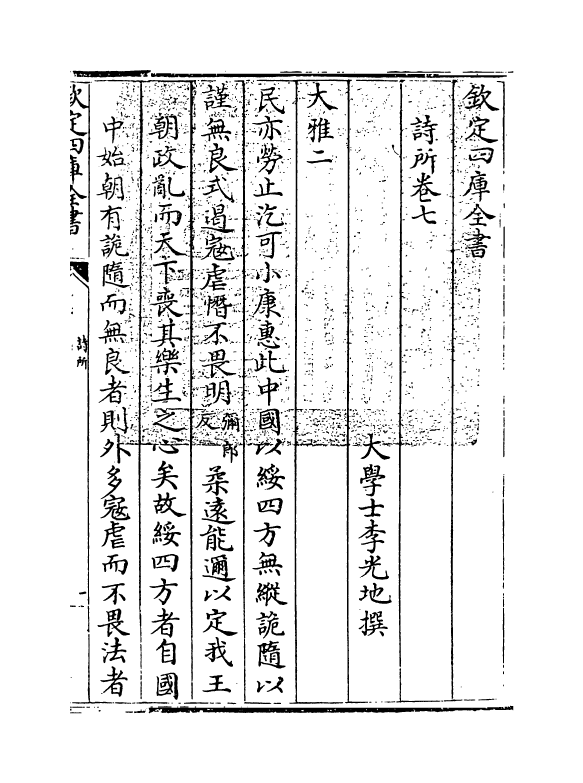 欽定四庫全書
詩所卷七
大學士李光地撰
大雅二
民亦勞止汔可小康惠此中國以綏四方無縱詭隨以
謹無良式遏寇虐憯不畏明彌郎反柔遠能邇以定我王
朝政亂而天下喪其樂生之心矣故綏四方者自國
中始朝有詭隨而無良者則外多寇虐而不畏法者
欽定四庫全書
詩所
一